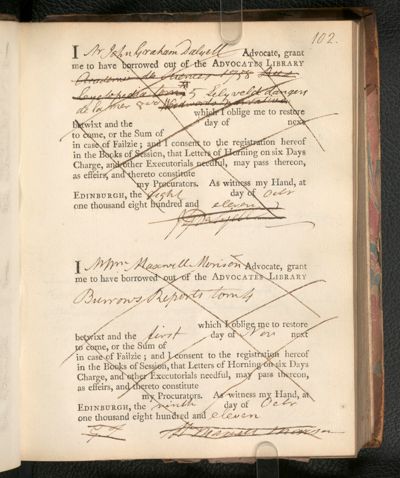 102.
I Mr John Graham Dalyell Advocate, grant
me to have borrowed out of the ADVOCATES LIBRARY
de Sciences
5 Lilyveld dangers
de la mer 8vo
which I oblige me to restore
betwixt and the day of next
to come, or the Sum of
in case of Failzie; and I consent to the registration hereof
in the Books of Session, that Letters of Horning on six Days
Charge, and other Executorials needful, may pass thereon,
as effeirs, and thereto constitute
my Procurators. As witness my Hand, at
EDINBURGH, the eight day of Octr
one thousand eight hundred and eleven
I Wm Maxwell Morison Advocate, grant
me to have borrowed out of the ADVOCATES LIBRARY
Burrows Reports tom
which I oblige me to restore
betwixt and the first day of Nov next
to come, or the Sum of
in case of Failzie; and I consent to the registration hereof
in the Books of Session, that Letters of Horning on six Days
Charge, and other Executorials needful, may pass thereon,
as effeirs, and thereto constitute
my Procurators. As witness my Hand, at
EDINBURGH, the ninth day of Octr
one thousand eight hundred and eleven
W Maxwell Morison